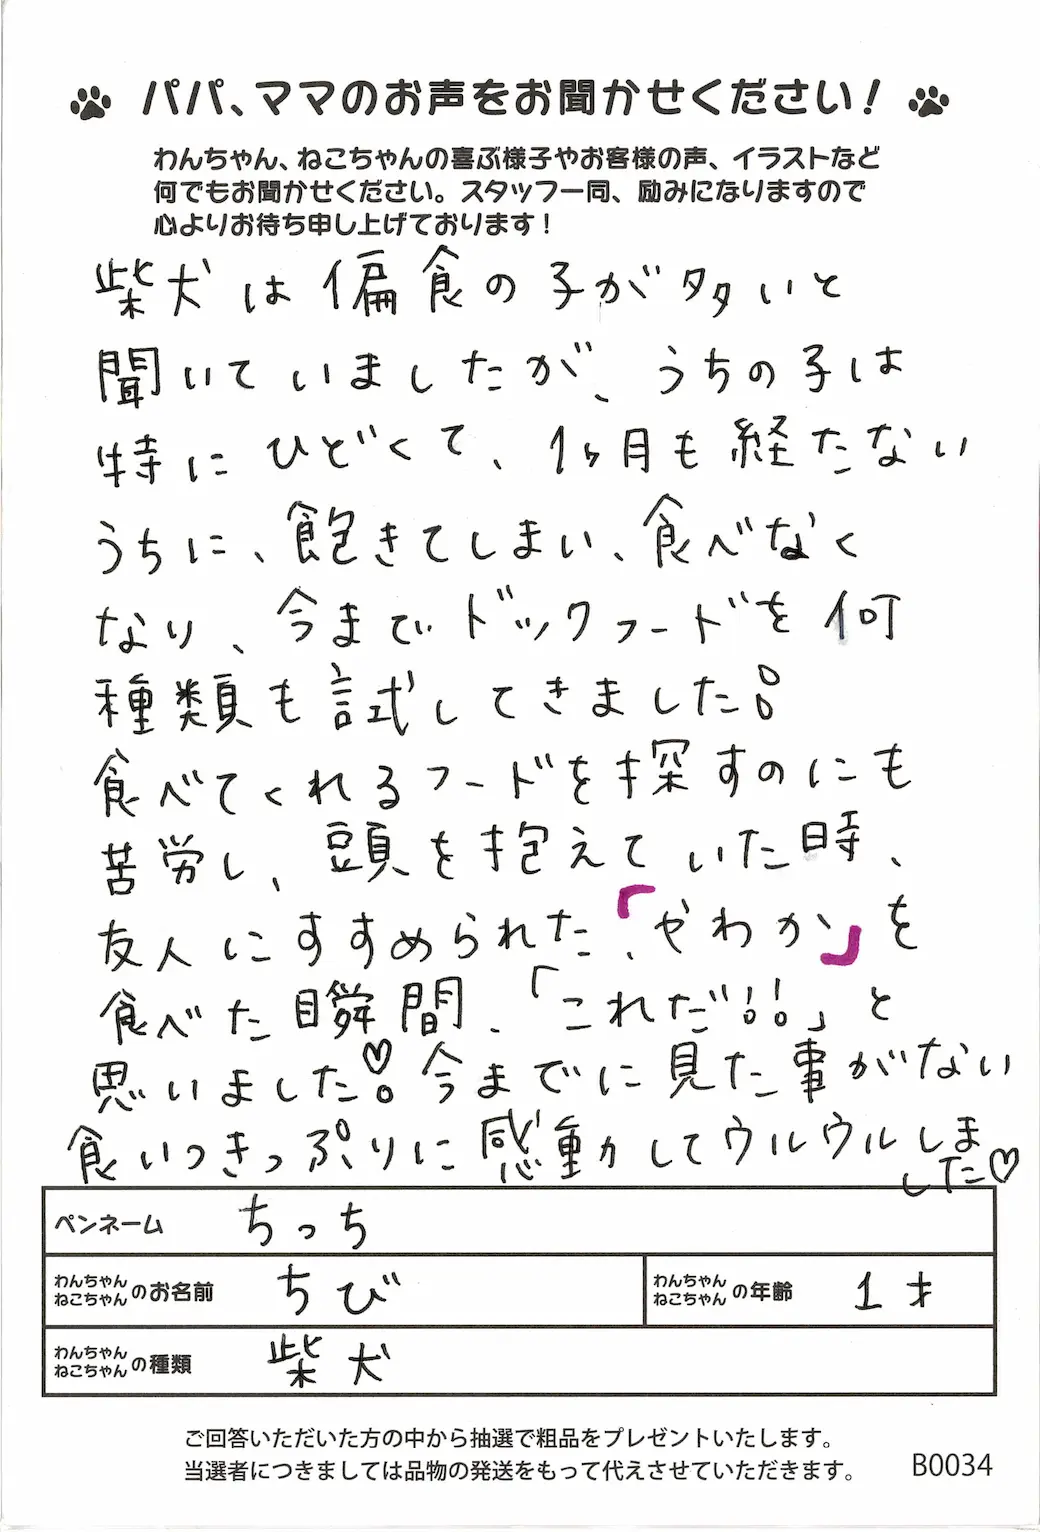 パパ、ママのお声をお聞かせください!
わんちゃん、ねこちゃんの喜ぶ様子やお客様の声、イラストなど
何でもお聞かせください。スタッフ一同、励みになりますので
心よりお待ち申し上げております!
柴犬は偏食の子が多いと
聞いていましたが、うちの子は
特にひどくて、1ヶ月も経たない
うちに、飽きてしまい、食べなく
なり、今までドックフードを何
種類も試してきました。
食べてくれるフードを探すのにも
苦労し、頭を抱えていた時、
友人にすすめられた、「やわか」を
食べた瞬間、「これだ!!」と
思いました♡。今までに見た事がない
食いつきっぷりに感動してウルウルしま
した♡
ペンネーム ちっち
わんちゃん
ねこちゃん の お名前 ちび
わんちゃん
ねこちゃん の年齢 1才
わんちゃん
ねこちゃん の種類 柴犬
ご回答いただいた方の中から抽選で粗品をプレゼントいたします。
当選者につきましては品物の発送をもって代えさせていただきます。 B0034